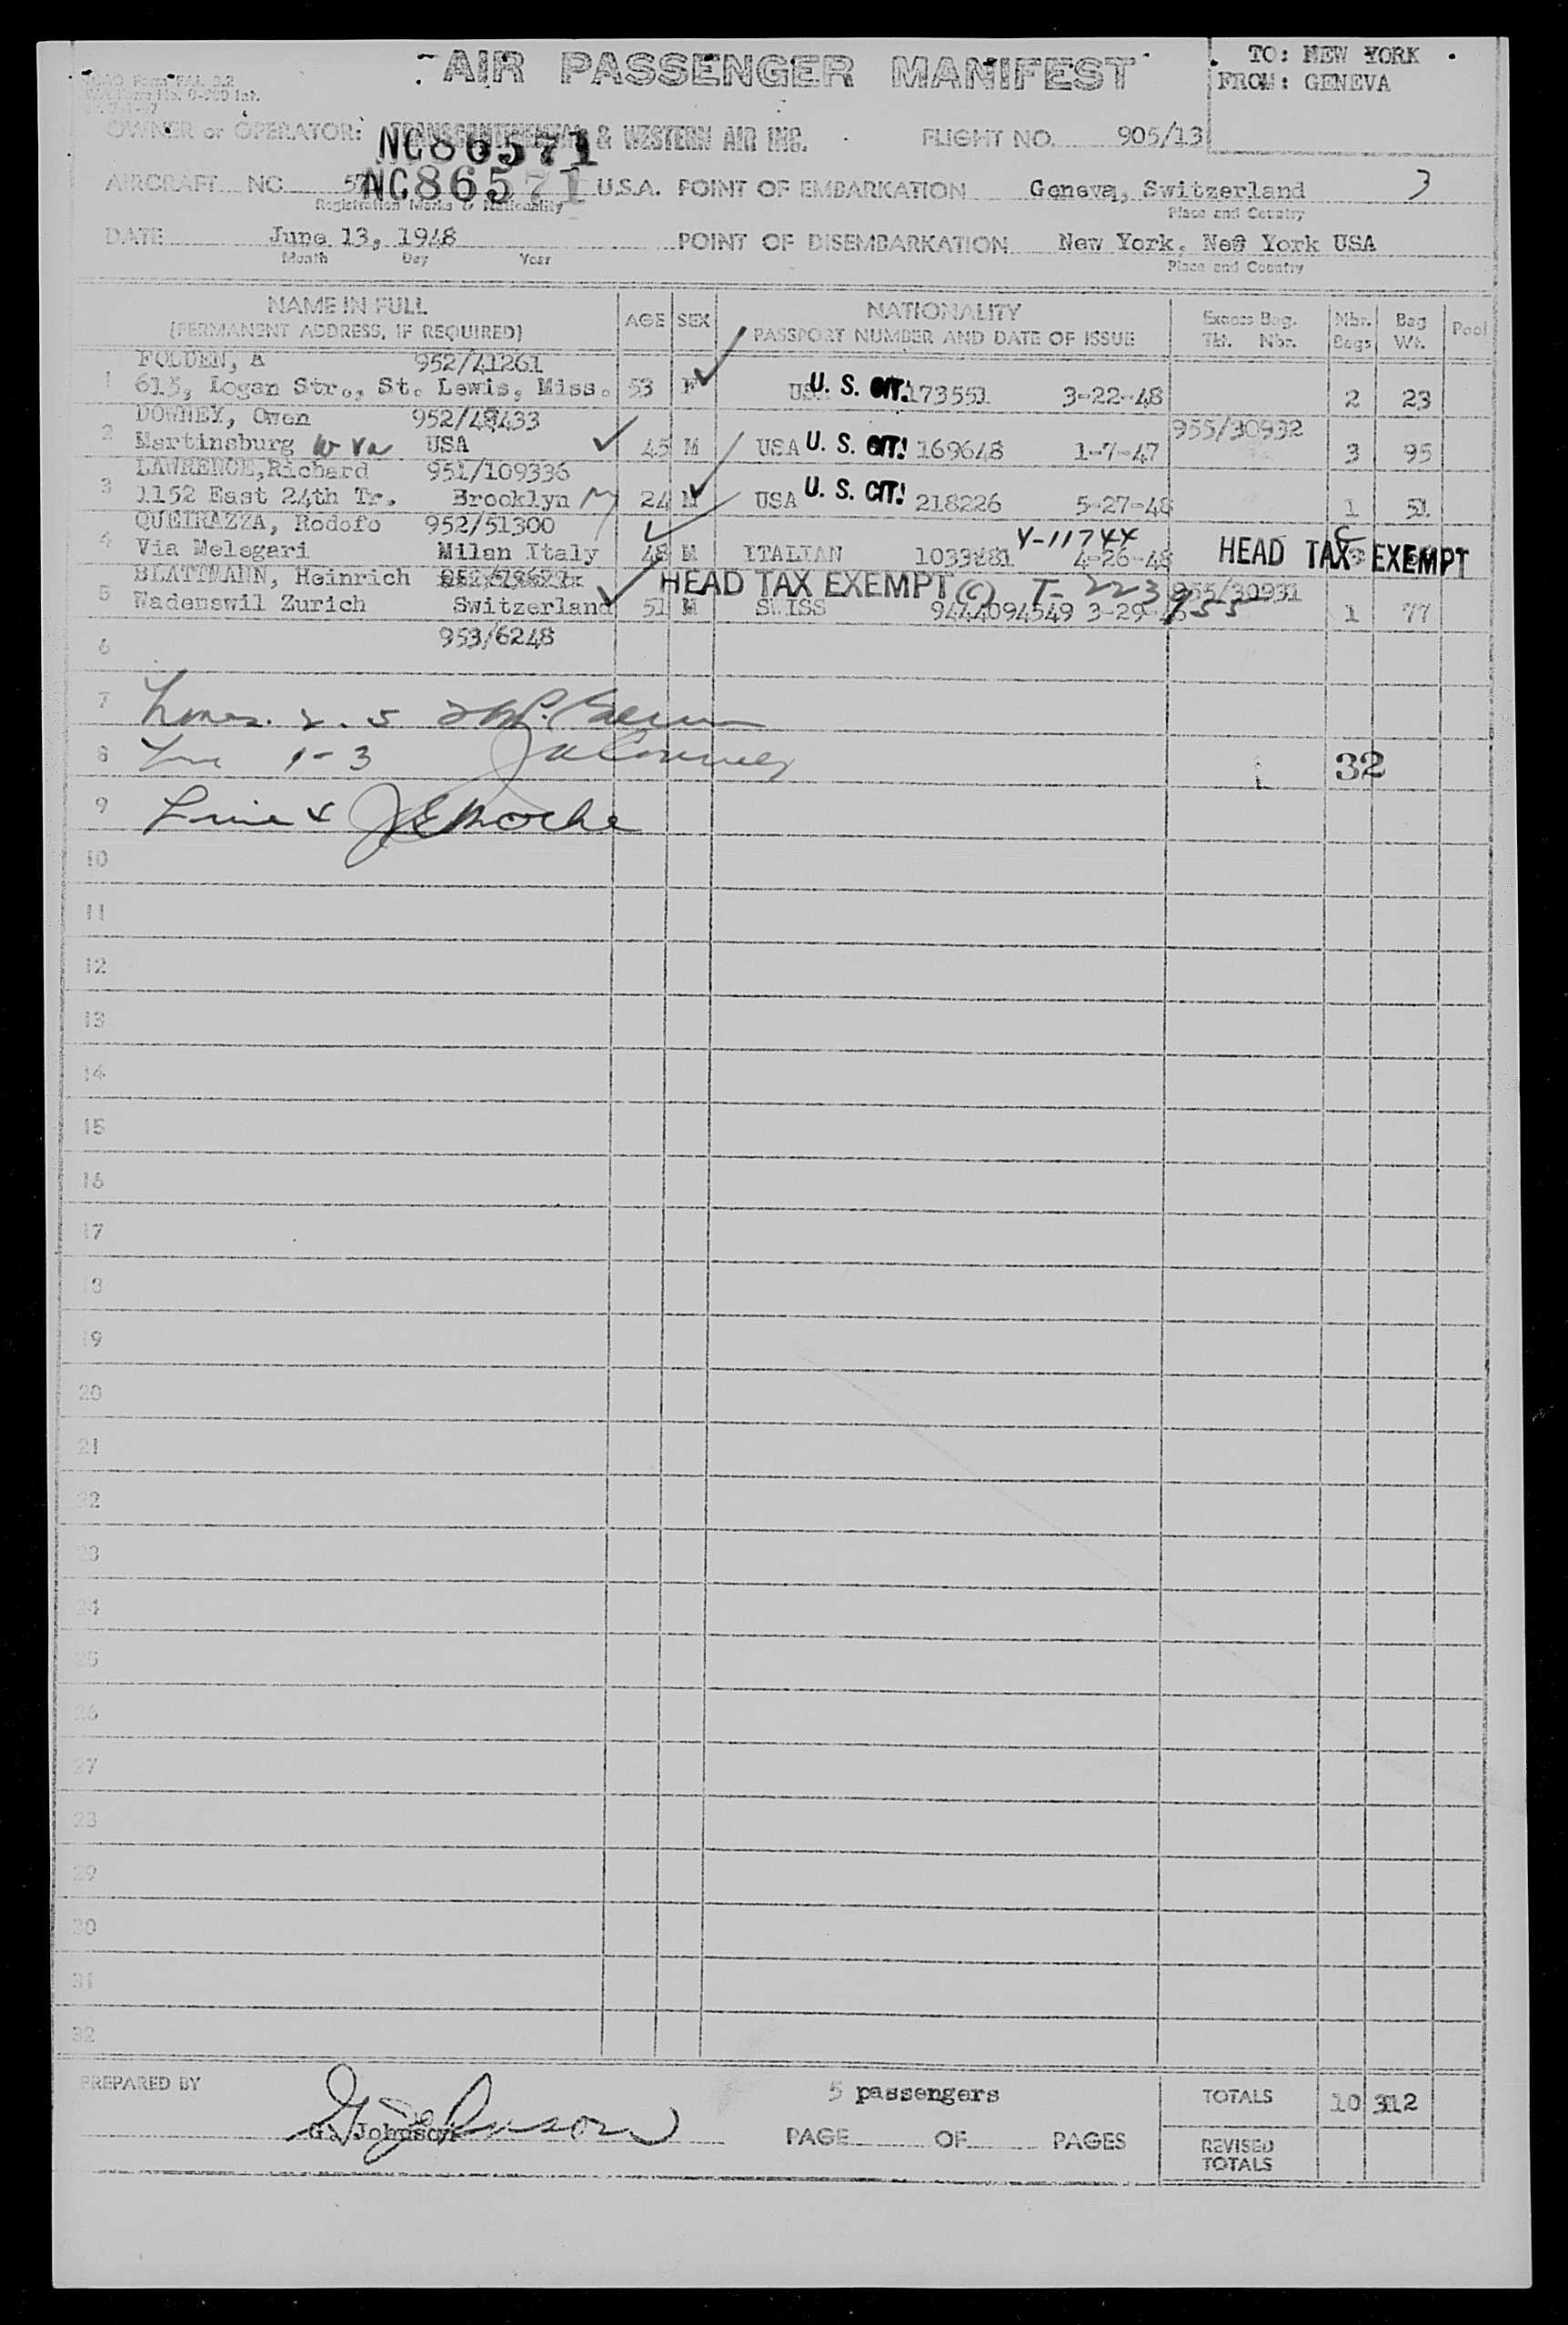 AIR PASSENGER MANIFEST
TO: NEW YORK
FROM: GENEVA
OWNER or OPERATOR: TRANSCONTINENTAL & WESTERN AIR INC.
NC86571
FLIGHT NO. 905/13
AIRCRAFT NC NC86571 U.S.A. POINT OF EMBARKATION Geneva, Switzerland 3
Registration Marks & Nationality Place and Country
DATE June 13, 1948 POINT OF DISEMBARKATION New York, New York USA
Month Day Year Place and Country
NAME IN FULL
(PERMANENT ADDRESS, IF REQUIRED)
AGE SEX
NATIONALITY
PASSPORT NUMBER AND DATE OF ISSUE
Excess Bag.
Tkt. Nbr.
Nbr.
Bags
Bag
Wt.
Pool
1 FOLDEN, A 952/41261
615, Logan Str., St. Lewis, Miss. 53 F U. S. CIT. 173551 3-22-48 2 23
2 DOWNEY, Owen 952/48433 955/30932
Martinsburg W Va USA 45 M USA U. S. CIT. 169648 1-7-47 3 95
3 LAWRENCE, Richard 951/109336
1152 East 24th Tr. Brooklyn 24 M USA U. S. CIT. 218226 5-27-48 1 51
4 QUEIRAZZA, Rodofo 952/51300 V-11744
Via Melegari Milan Italy 48 M ITALIAN 4-26-48 HEAD TAX EXEMPT
5 BLATTMANN, Heinrich HEAD TAX EXEMPT T-223955 955/30931
Wadenswil Zurich Switzerland 51 M SWISS 1 77
6 953/6248
7
8 1-3 32
9 Line 4
10
11
12
13
14
15
16
17
18
19
20
21
22
23
24
25
26
27
28
29
30
31
32
PREPARED BY G. Johnson
5 passengers
PAGE OF PAGES
TOTALS 10 312
REVISED
TOTALS